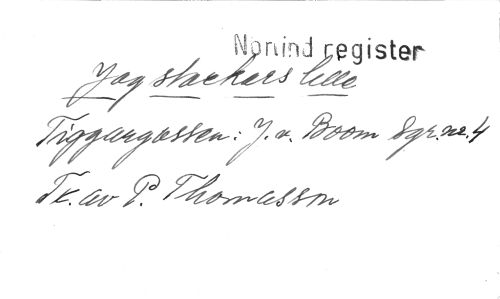 Nonind register
Jag stackars lille
Tiggargossen: J. v. Boom Sgr. nr. 4
Tx. av P. Thomasson